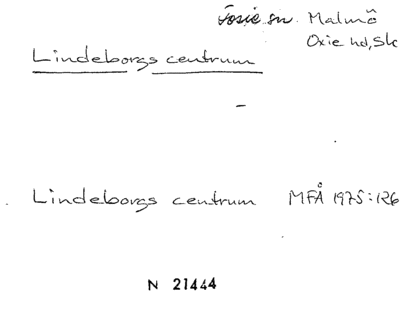 Fosie sn. Malmö
Oxie hd, Sk
Lindeborgs centrum
-
Lindeborgs centrum MFÅ 1975:126
N 21444